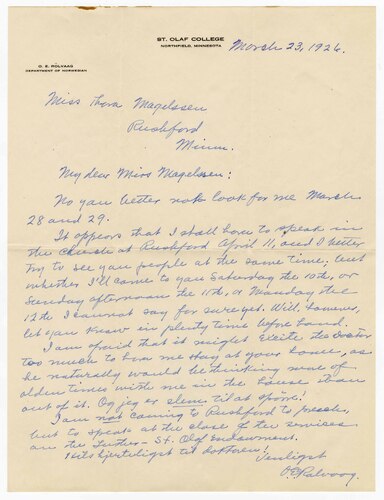 ST. OLAF COLLEGE
NORTHFIELD, MINNESOTA
March 23, 1926.
O. E. ROLVAAG
DEPARTMENT OF NORWEGIAN
Miss Thora Magelssen
Rushford
Minn.
My dear Miss Magelssen:
No you better not look for me March
28 and 29.
It appears that I shall have to speak in
the church at Rushford April 11, and I better
try to see you people at the same time; but
whether I'll come to you Saturday the 10th, or
Sunday afternoon the 11th, or Monday the
12th I cannot say for sure yet. Will, however,
let you know in plenty time before hand.
I am afraid that it might excite the doctor
too much to have me stay at your house, as
he naturally would be thinking more of
olden times with me in the house than
out of it. Og jeg er slem til at
I am not coming to Rushford to preach,
but to speak at the close of the services
on the Luther - St. Olaf Endowment.
hjerteligst til doktoren!
Venligst
O E Rolvaag.